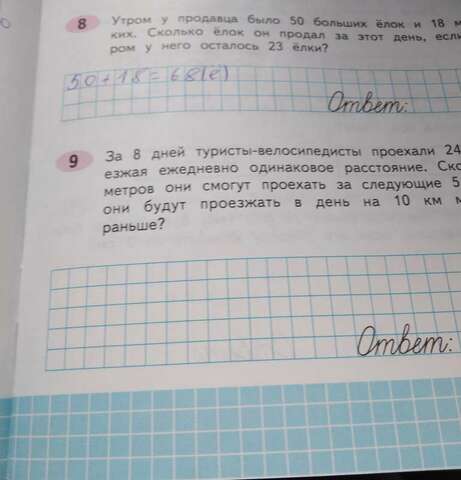 8 Утром у продавца было 50 больших ёлок и 18
ких. Сколько ёлок он продал за этот день,
ром у него осталось 23 ёлки?
50+18=68(ё)
Ответ:
9 За 8 дней туристы-велосипедисты проехали 24
езжая ежедневно одинаковое расстояние.
метров они смогут проехать за следующие 5
они будут проезжать в день на 10 км
раньше?
Ответ: